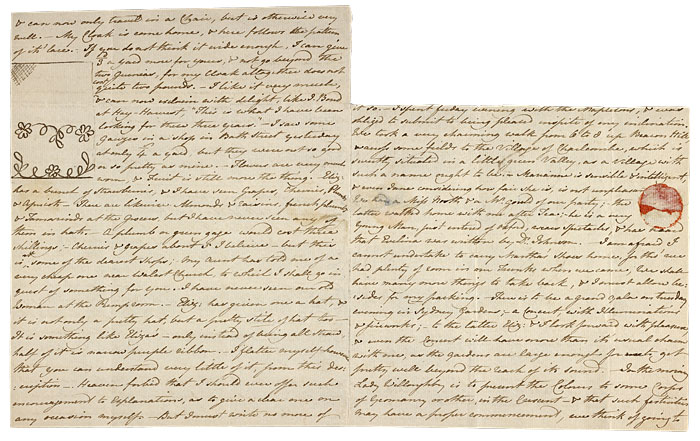 & can now only travel in a Chair, but is otherwise very
well. — My Cloak is come home, & here follows the pattern
of its' lace. — If you do not think it wide enough, I can give
3d a yard more for yours, & not go beyond the
two Guineas, for my Cloak altogether does not
cost quite two pounds. — I like it very much,
& can now exclaim with delight, like J. Bond
at Hay-Harvest, "This is what I have been
looking for these three years." — I saw some
Gauzes in a shop in Bath Street yesterday
at only 4s a yard, but they were not so good
or so pretty as mine. — Flowers are very much
worn, & Fruit is still more the thing. — Eliz:
has a bunch of Strawberries, & I have seen Grapes, Cherries, Plumbs
& Apricots — There are likewise Almonds & raisins, french plumbs
& Tamarinds at the Grocers, but I have never seen any of
them in hats. — A plumb or green gage would cost three
shillings; — Cherries & Grapes about 5 I believe — but this
is at some of the dearest Shops; — My Aunt has told me of a
very cheap one near Walcot Church, to which I shall go in
quest of something for you. — I have never seen an old
Woman at the Pump-room. — Eliz: has given me a hat, &
it is not only a pretty hat, but a pretty stile of hat too —
It is something like Eliza's — only instead of being all straw,
half of it is narrow purple ribbon. — I flatter myself however
that you can understand very little of it, from this des:
:cription —. Heaven forbid that I should ever offer such
encouragement to Explanations, as to give a clear one on
any occasion myself. — But I must write no more of
it so. — I spent friday evening with the Mapletons, & was
obliged to submit to being pleased inspite of my inclination.
We took a very charming walk from 6 to 8 up Beacon Hill,
& across some fields to the Village of Charlecombe, which is
sweetly situated in a little green Valley, as a Village with
such a name ought to be. — Marianne is sensible & intelligent,
& even Jane considering how fair she is, is not unpleasant.
We had a Miss North & a Mr. Gould of our party; — the
latter walked home with me after Tea; — he is a very
Young Man, just entered of Oxford, wears Spectacles, & has heard
that Evelina was written by Dr. Johnson. — I am afraid I
cannot undertake to carry Martha's Shoes home, for tho' we
had plenty of room in our Trunks when we came, We shall
have many more things to take back, & I must allow be:
:sides for my packing. — There is to be a grand gala on tuesday
evening in Sydney Gardens; — a Concert, with Illuminations
& fireworks; — to the latter Eliz: & I look forward with pleasure,
& even the Concert will have more than its' usual charm
with me, as the Gardens are large enough for me to get
pretty well beyond the reach of its sound. — In the morng
Lady Willoughby is to present the Colours to some Corps
of Yeomanry or other, in the Crescent — & that such festivities
may have a proper commencement, we think of going to